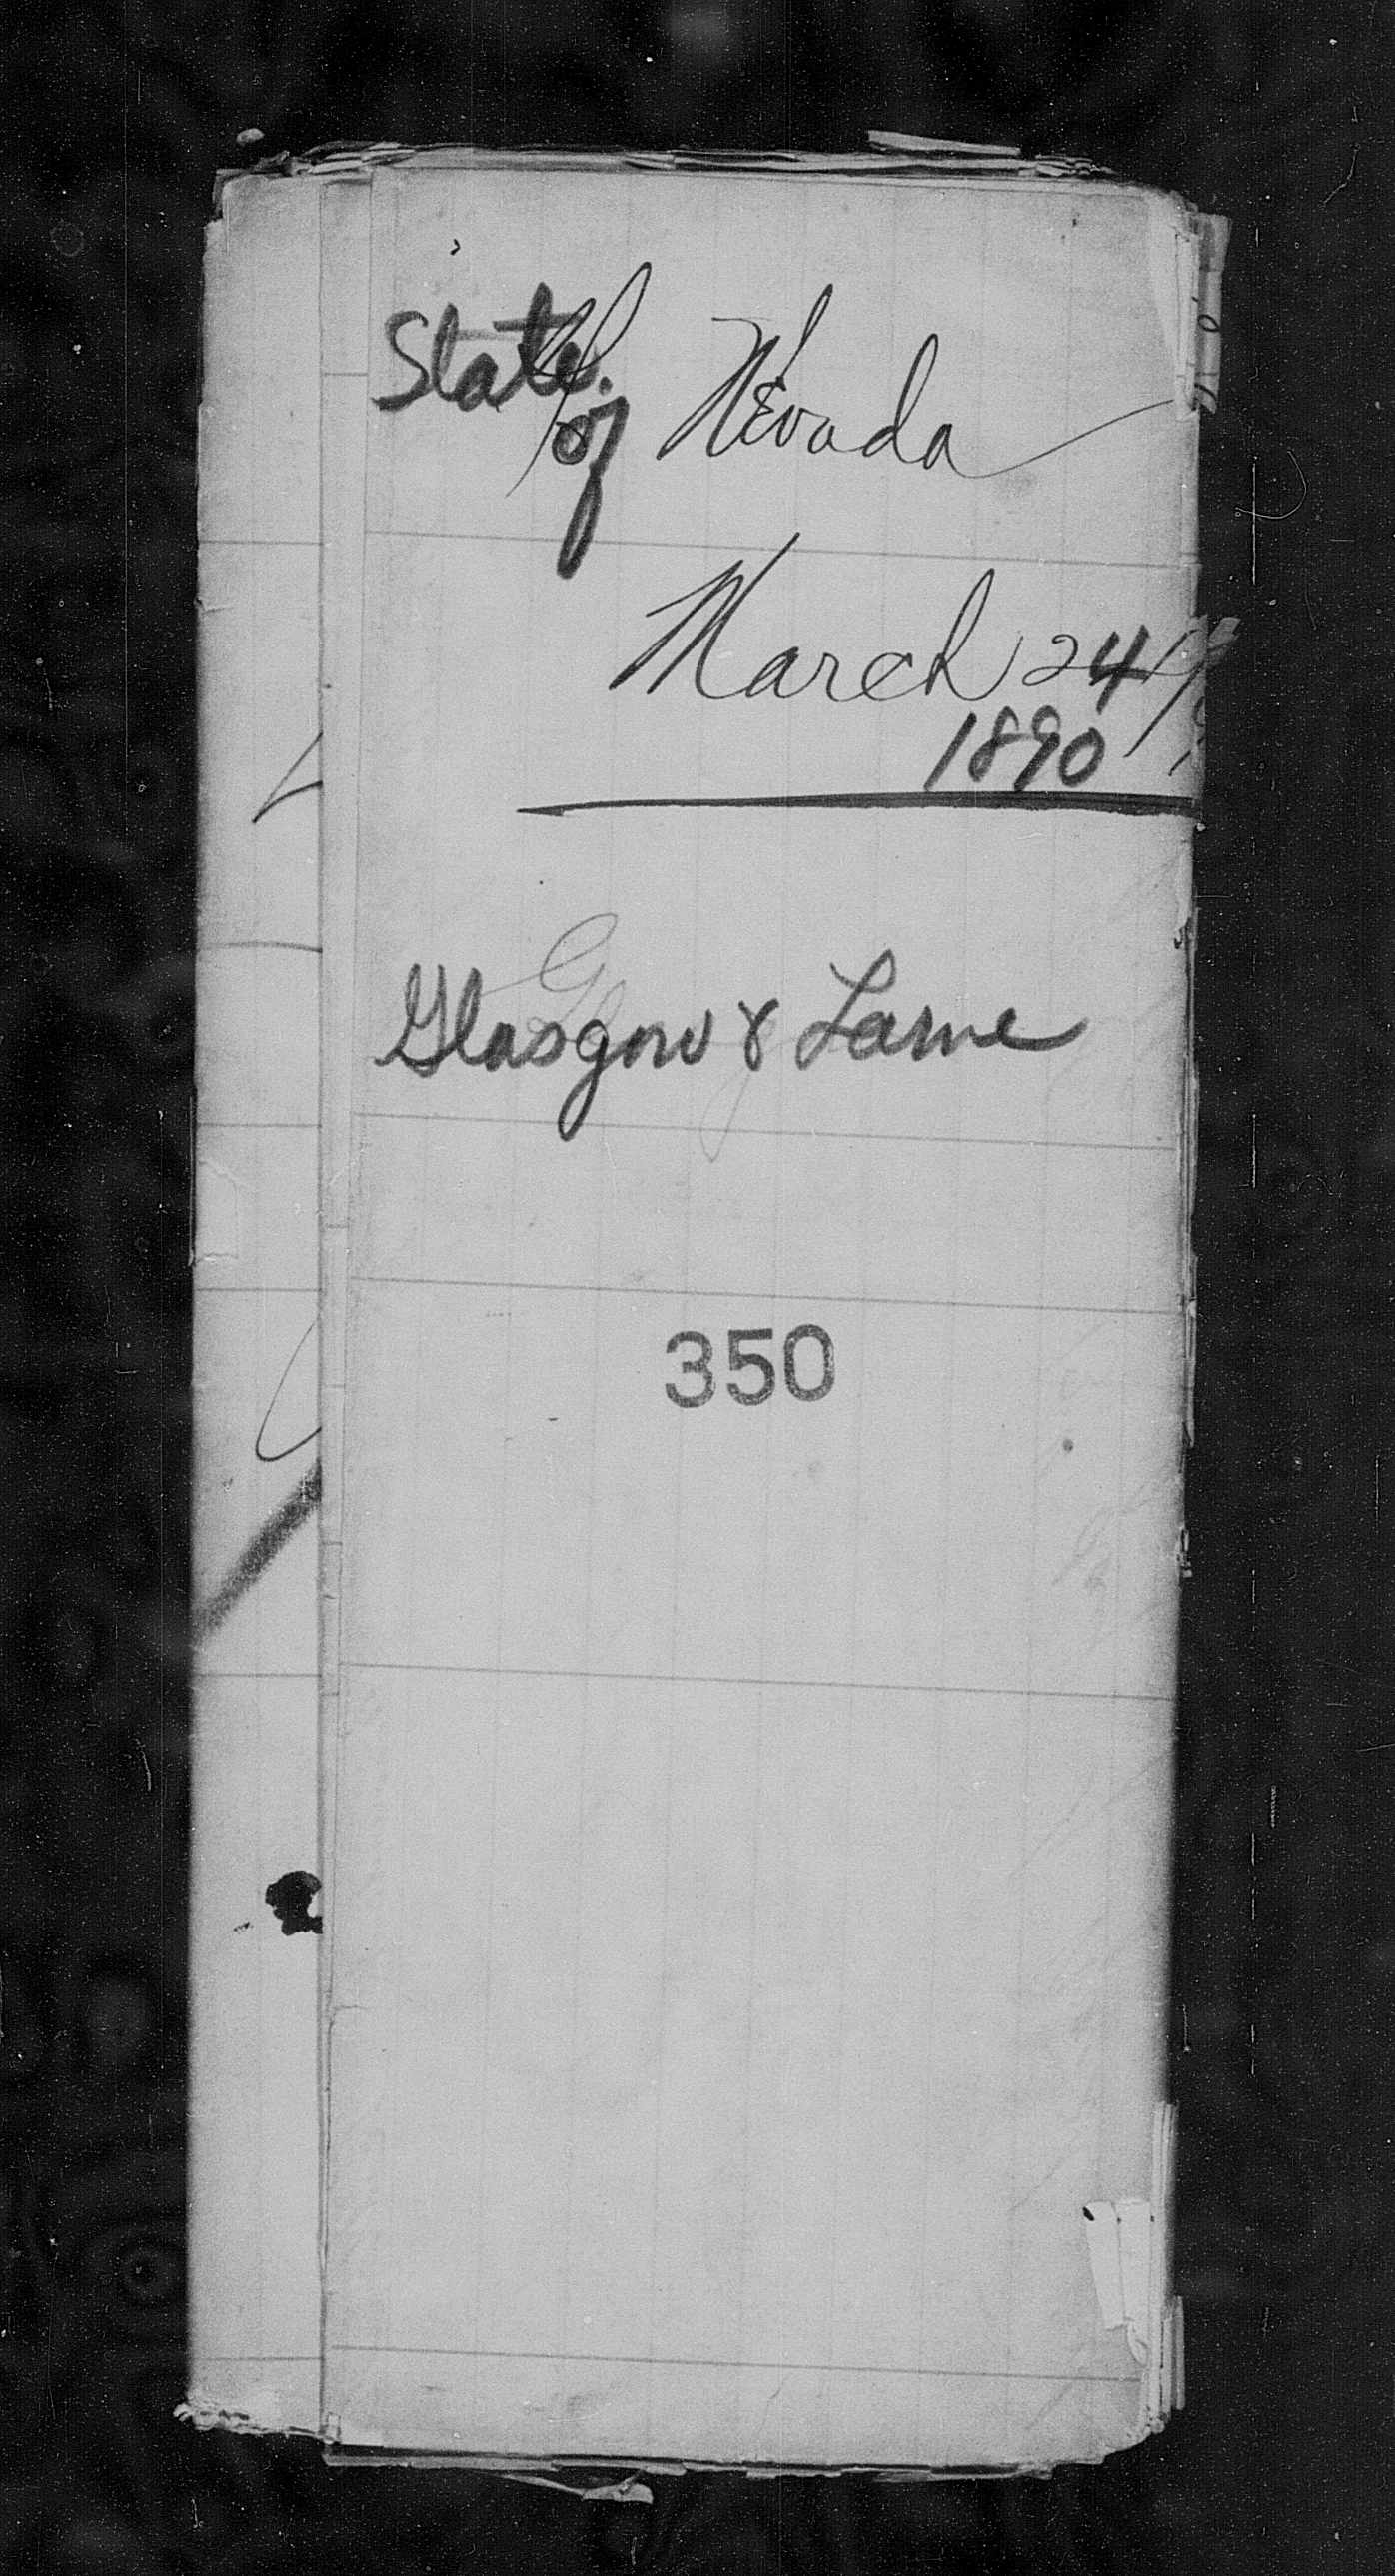 State of Nevada
March 24
1890
Glasgow & Larne
350